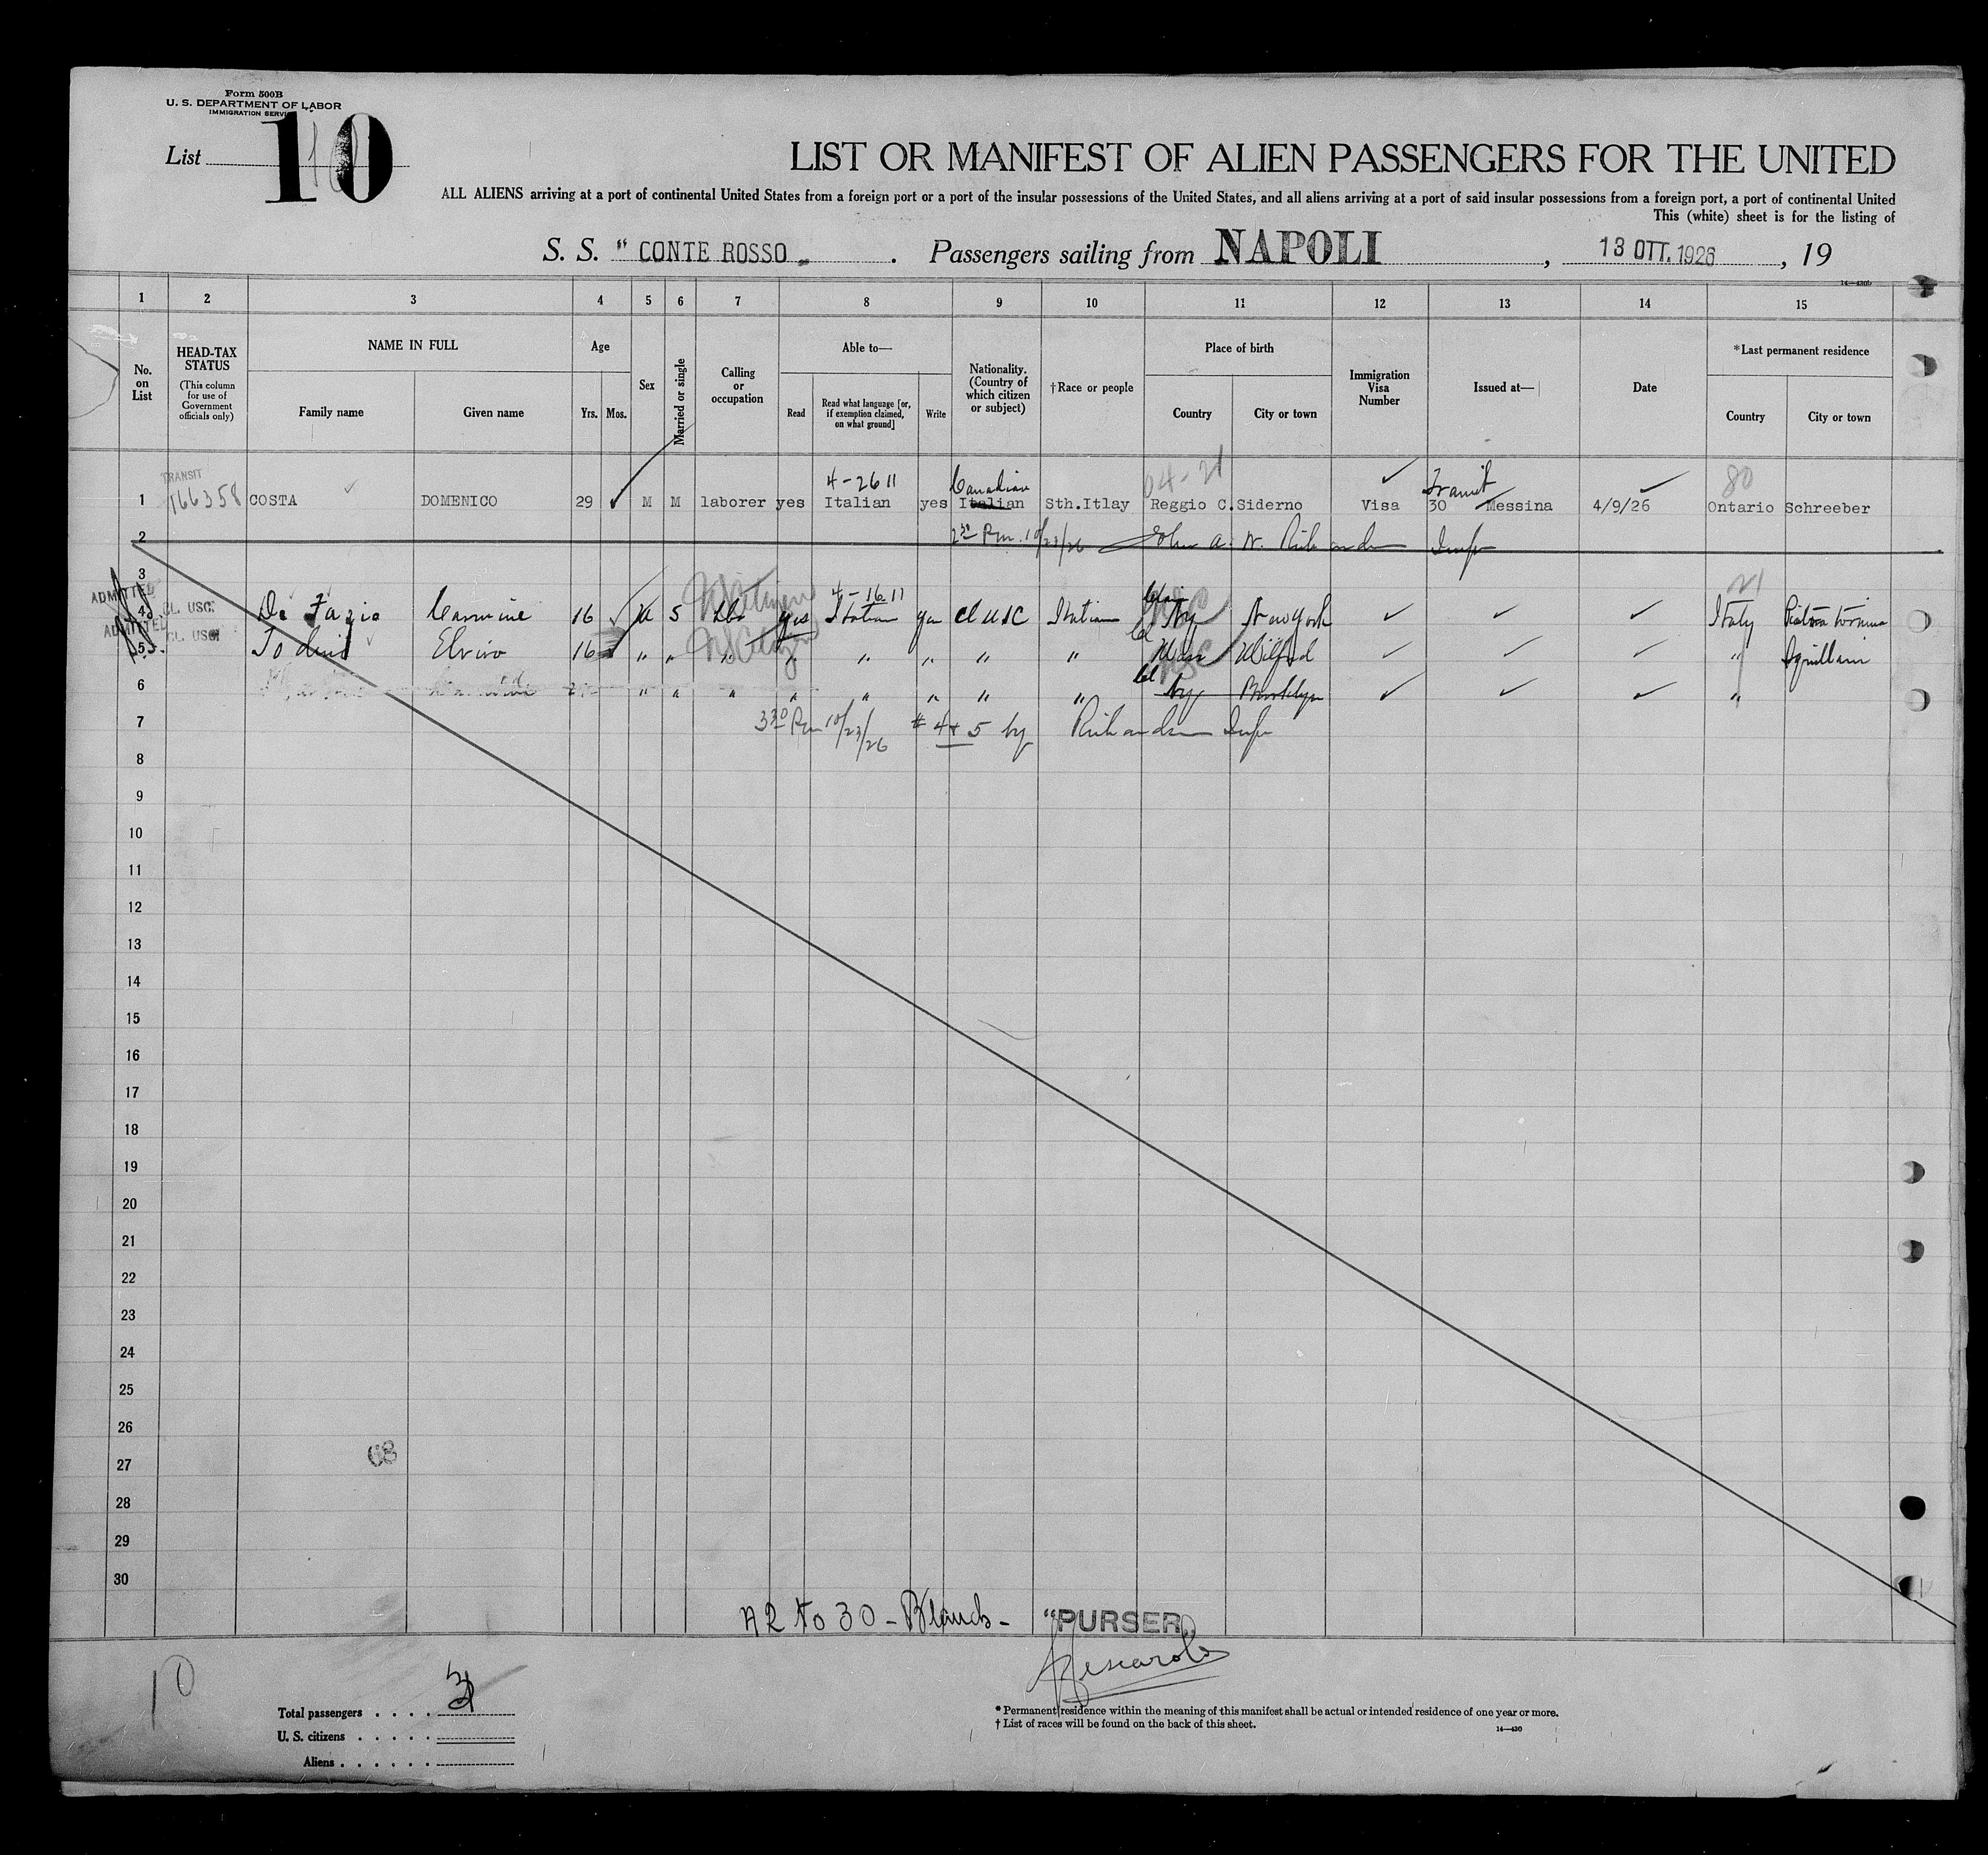 Form 500B
U. S. DEPARTMENT OF LABOR
IMMIGRATION SERVICE
List 10
LIST OR MANIFEST OF ALIEN PASSENGERS FOR THE UNITED
ALL ALIENS arriving at a port of continental United States from a foreign port or a port of the insular possessions of the United States, and all aliens arriving at a port of said insular possessions from a foreign port, a port of continental United
This (white) sheet is for the listing of
S. S. " CONTE ROSSO . Passengers sailing from NAPOLI , 13 OTT. 1926 , 19
14—430b
1 2 3 4 5 6 7 8 9 10 11 12 13 14 15
No. on List
HEAD-TAX STATUS (This column for use of Government officials only)
NAME IN FULL
Family name Given name
Age
Yrs. Mos.
Sex
Married or single
Calling or occupation
Able to—
Read Read what language [or, if exemption claimed, on what ground] Write
Nationality. (Country of which citizen or subject)
†Race or people
Place of birth
Country City or town
Immigration Visa Number
Issued at—
Date
*Last permanent residence
Country City or town
TRANSIT 4-26 11 Canadian 04-21 Transit 80
1 166358 COSTA DOMENICO 29 M M laborer yes Italian yes Italian Sth.Itlay Reggio C. Siderno Visa 30 Messina 4/9/26 Ontario Schreeber
2 2 30 Pm. 10/23/26 John A. W. Richards Insp
3
ADMITTED CL. USC. 4-16 11 21
4 De Fazio Carmine 16 M S Lbr yes Italian yes Cl USC Italian NY New York Italy
ADMITTED CL. USC.
5 Elviro 16 " " " " " " " " Mass Milford "
6 " " " " " " " " NY Brooklyn "
7 3 30 Pm 10/23/26 # 4 & 5 by Richards Insp
8
9
10
11
12
13
14
15
16
17
18
19
20
21
22
23
24
25
26
68
27
28
29
30
N2 to 30 - Blank - "PURSER
10
Total passengers . . . . 3
U. S. citizens . . . . .
Aliens . . . . . .
* Permanent residence within the meaning of this manifest shall be actual or intended residence of one year or more.
† List of races will be found on the back of this sheet.
14—430